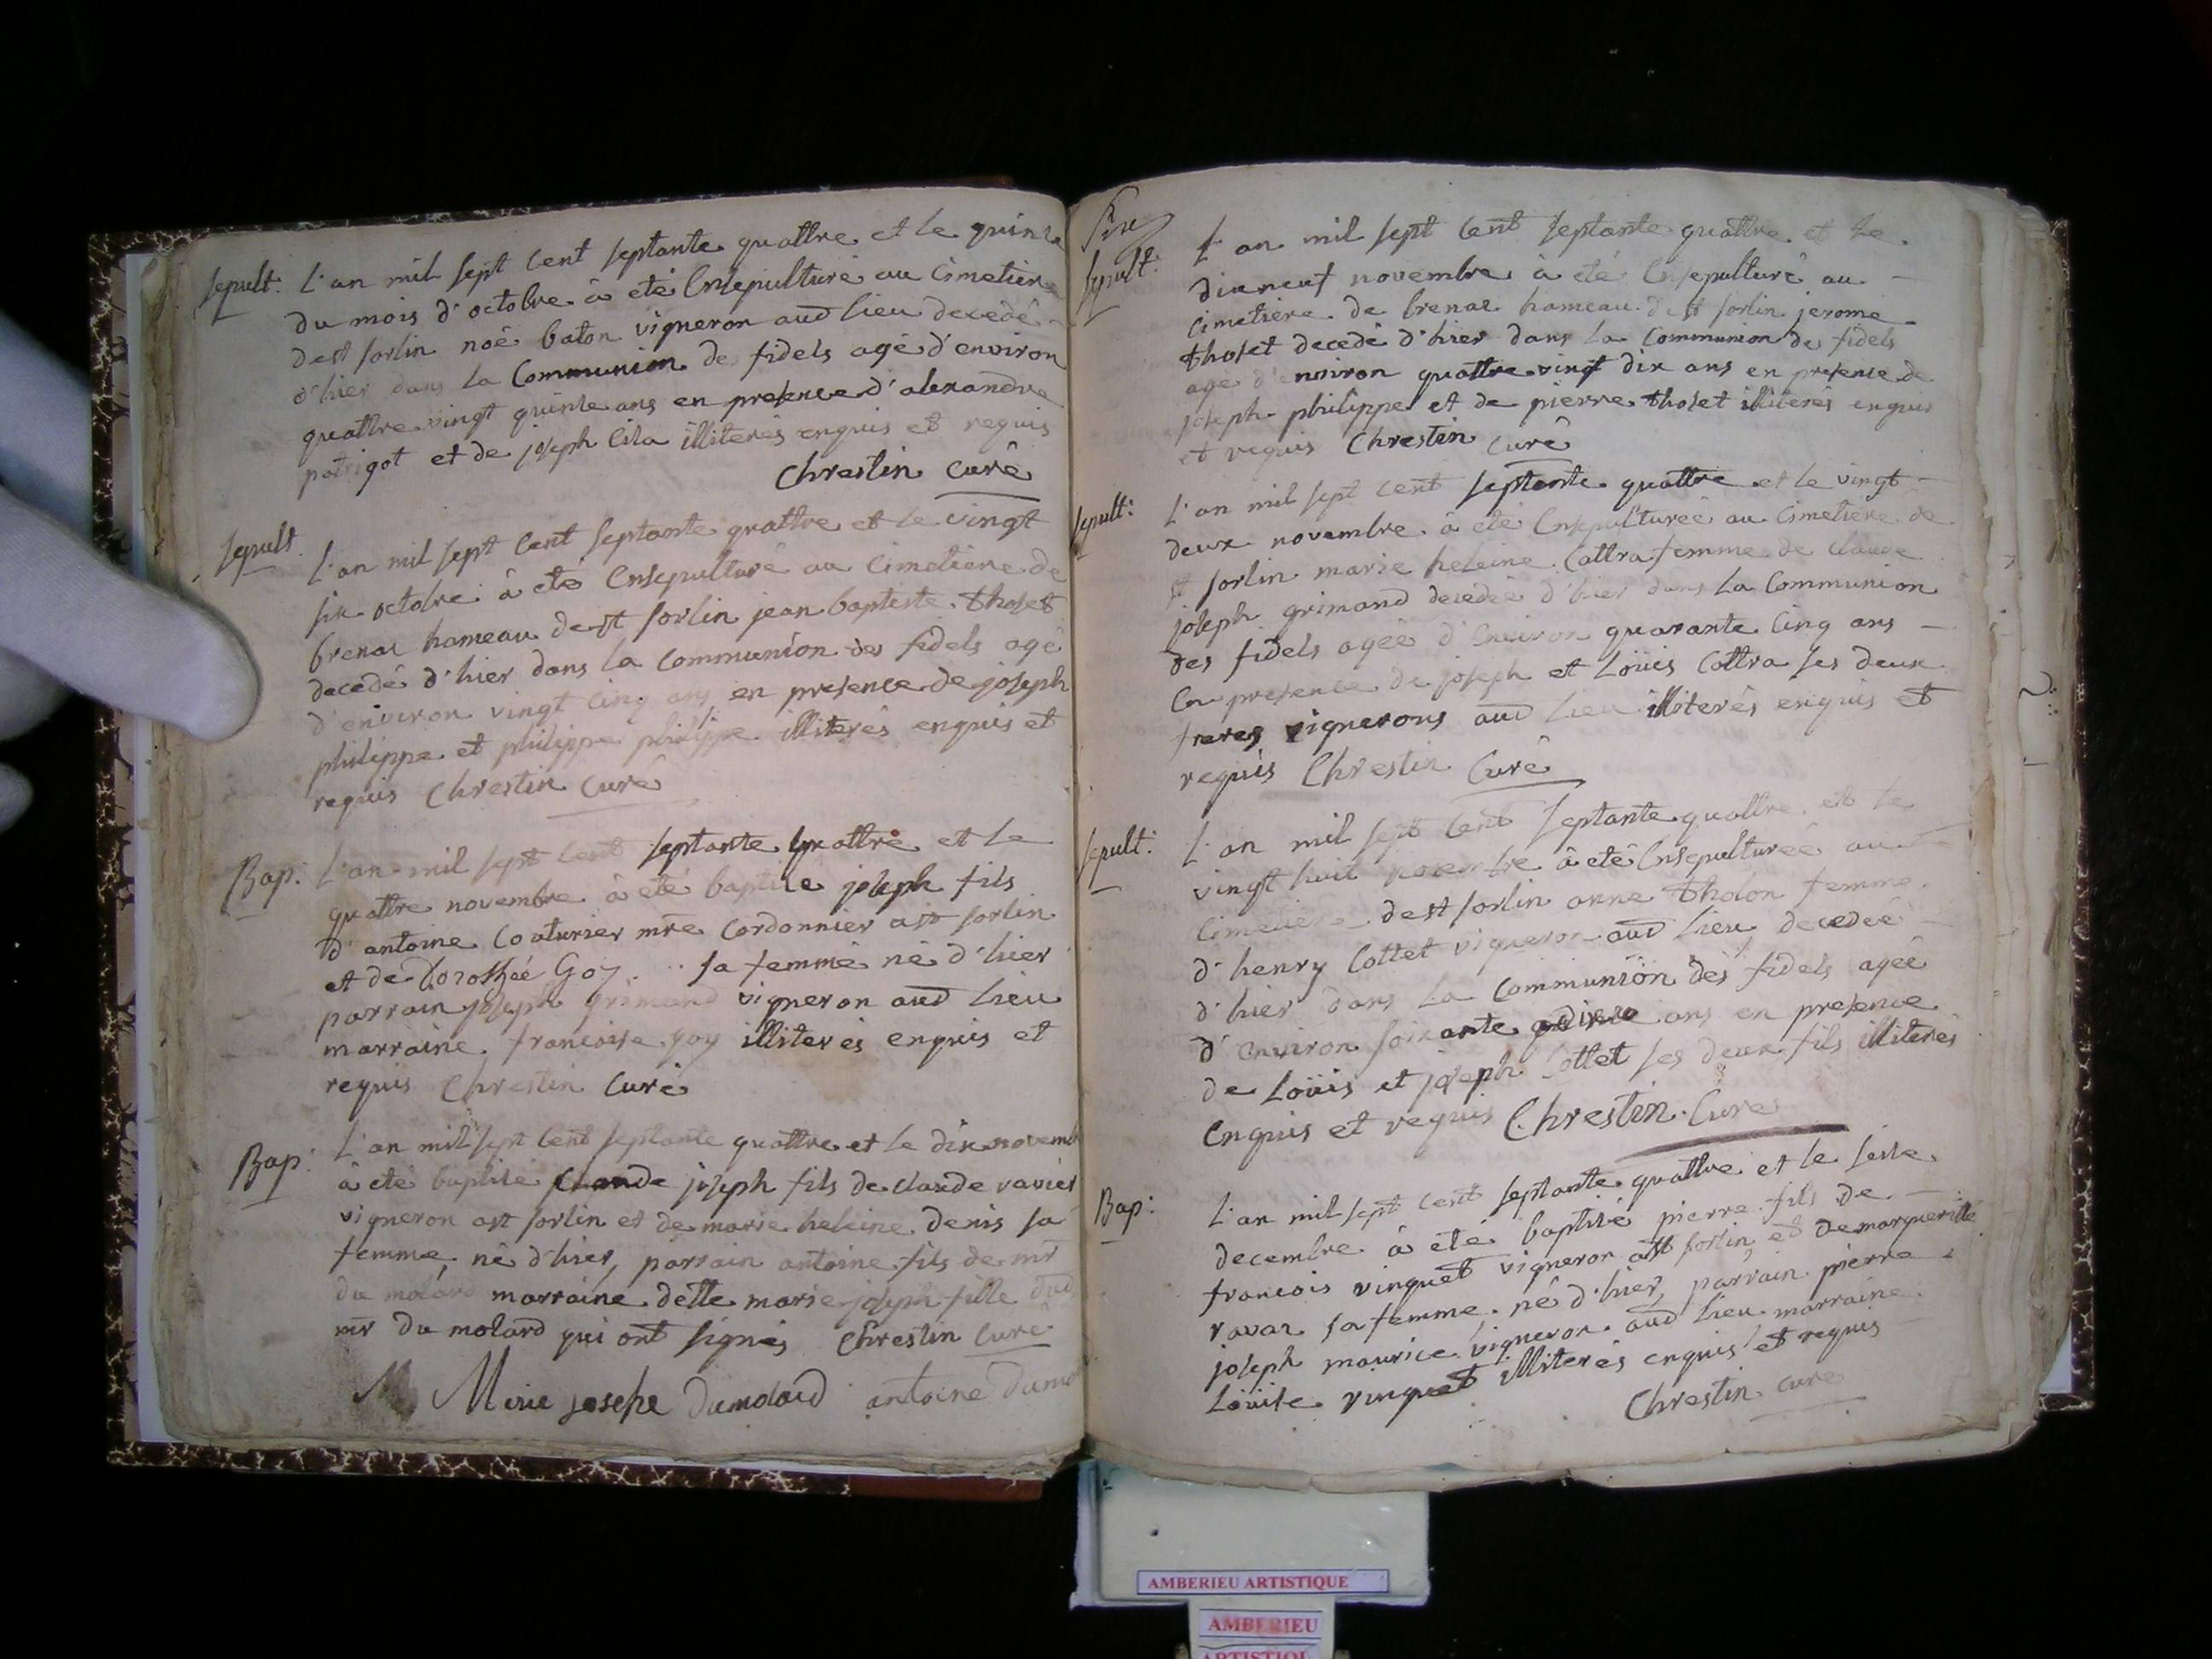 Sepult: L'an mil sept cent septante quattre et le quinze
du mois d'octobre à eté Ensepulturé au Cimetiere
de st sorlin noë baton vigneron aud lieu decedé
d'hier dans la Communion des fidels agé d'environ
quattre vingt quinze ans en presence d'alexandre
patrigot et de joseph lila illiterés enquis et requis
Chrestin Curé
Sepult L'an mil sept cent septante quattre et le vingt
six octobre à eté Ensepulturé au Cimetiere de
brenaz hameau de st sorlin jean baptiste tholet
decedé d'hier dans la Communion des fidels agé
d'environ vingt cinq ans en presence de joseph
philippe et philippe philippe illiterés enquis et
requis Chrestin Curé
Bap: L'an mil sept cent septante quattre et le
quattre novembre à eté baptisé joseph fils
d'antoine Couturier mre Cordonnier a st sorlin
et de Dorothéé Goy sa femme né d'hier
parrain joseph grimand vigneron aud lieu
marraine francoise goy illiterés enquis et
requis Chrestin Curé
Bap: L'an mil sept cent septante quattre et le dix novemb
à eté baptisé Claude joseph fils de claude ravier
vigneron a st sorlin et de marie heleine denis sa
femme, né d'hier, parrain antoine fils de mr
du molard marraine delle marie joseph fille dud
mr du molard qui ont signés Chrestin Curé
Marie josephe Dumolard antoine dumo
Six
Sepult: L'an mil sept cent septante quattre et le
dix neuf novembre à eté Ensepulturé au
Cimetiere de brenaz hameau de st sorlin jerome
tholet decedé d'hier dans la Communion des fidels
agé d'environ quattre vingt dix ans en presence de
joseph philippe et de pierre tholet illiterés enquis
et requis Chrestin Curé
Sepult: L'an mil sept cent septante quattre et le vingt
deux novembre à eté Ensepulturéé au Cimetiere de
st sorlin marie heleine Cottra femme de claude
joseph grimand decedéé d'hier dans la Communion
des fidels agéé d'Environ quarante Cinq ans
En presence de joseph et Loüis Cottra ses deux
freres vignerons aud lieu illiterés enquis et
requis Chrestin Curé
Sepult: L'an mil sept cent septante quattre et le
vingt huit novembre à eté Ensepulturéé au
Cimetiere de st sorlin anne tholon femme
d'henry Cottet vigneron aud lieu decedéé
d'hier dans la Communion des fidels agéé
d'environ soixante ans en presence
de Loüis et joseph Cottet ses deux fils illiterés
Enquis et requis Chrestin Curé
Bap: L'an mil sept cent septante quattre et le seize
decembre à eté baptisé pierre fils de
francois vinguet vigneron a st sorlin et de marguerite
ravaz sa femme, né d'hier, parrain pierre
joseph maurice vigneron aud lieu marraine
Loüise vinguet illiterés enquis et requis
Chrestin Curé
AMBERIEU ARTISTIQUE
AMBERIEU
ARTISTIQU